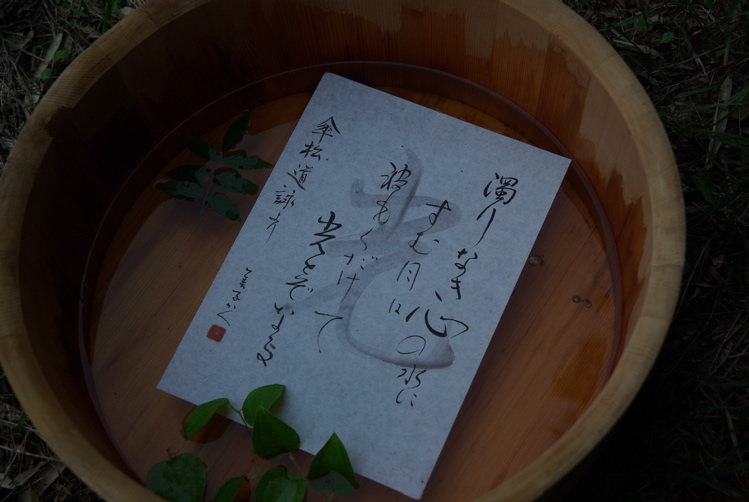 濁りなき心の水に
すむ月は
波もくだけて
光とぞなる
傘松道詠ヨリ
光